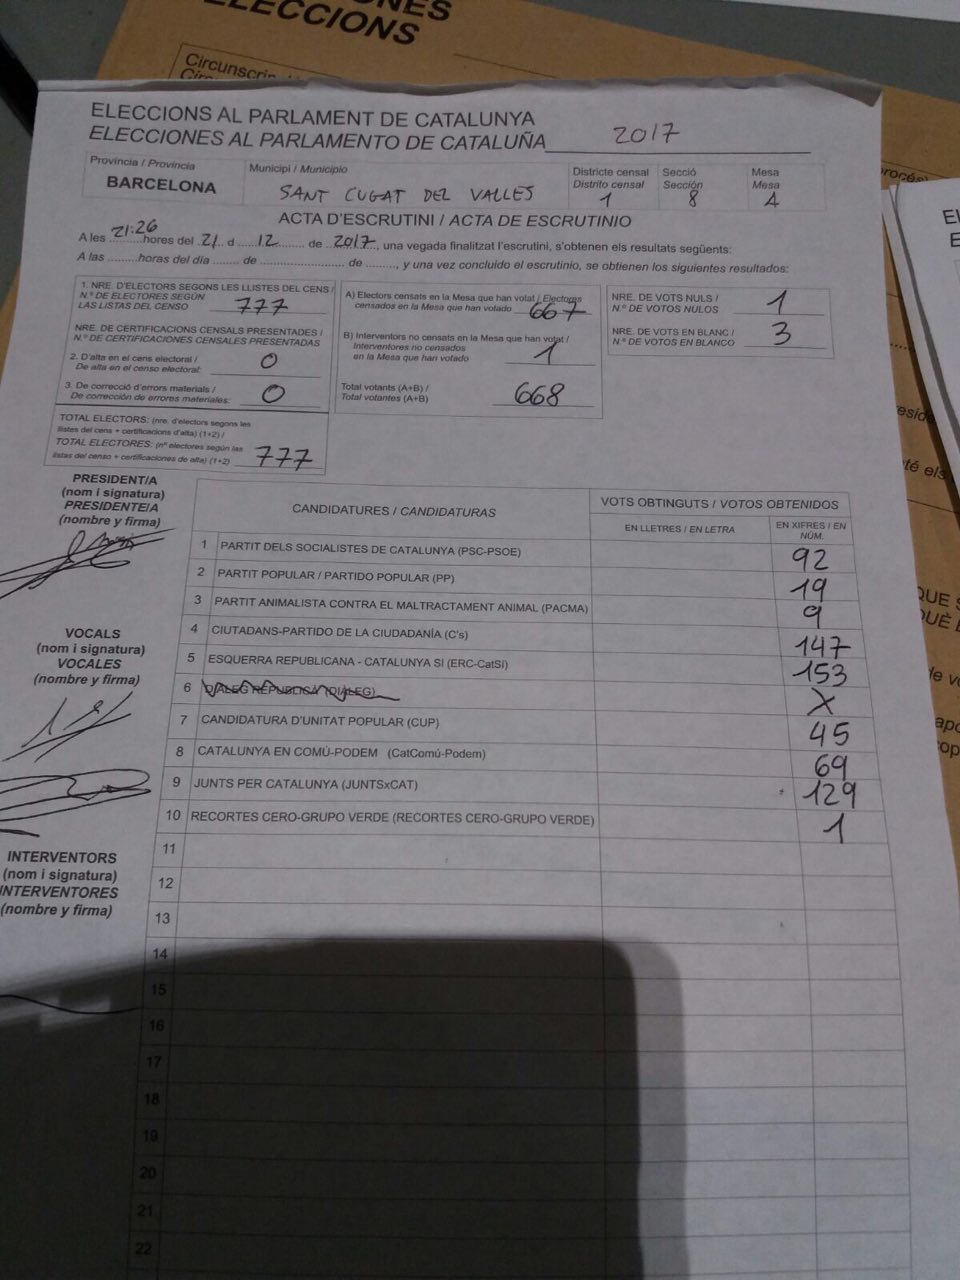 ELECCIONS
Circunscrip
ELECCIONS AL PARLAMENT DE CATALUNYA
ELECCIONES AL PARLAMENTO DE CATALUÑA 2017
Província / Provincia
BARCELONA
Municipi / Municipio
SANT CUGAT DEL VALLES
Districte censal
Distrito censal
1
Secció
Sección
8
Mesa
Mesa
A
ACTA D'ESCRUTINI / ACTA DE ESCRUTINIO
A les 21:26 hores del 21 d 12 de 2017, una vegada finalitzat l'escrutini, s'obtenen els resultats següents:
A las .........horas del día ....... de .......................... de ........, y una vez concluido el escrutinio, se obtienen los siguientes resultados:
1. NRE. D'ELECTORS SEGONS LES LLISTES DEL CENS /
N.º DE ELECTORES SEGÚN
LAS LISTAS DEL CENSO 777
NRE. DE CERTIFICACIONS CENSALS PRESENTADES /
N.º DE CERTIFICACIONES CENSALES PRESENTADAS
2. D'alta en el cens electoral /
De alta en el censo electoral: 0
3. De correcció d'errors materials /
De corrección de errores materiales: 0
TOTAL ELECTORS: (nre. d'electors segons les
llistes del cens + certificacions d'alta) (1+2) /
TOTAL ELECTORES: (nº electores según las
listas del censo + certificaciones de alta) (1+2) 777
A) Electors censats en la Mesa que han votat / Electores
censados en la Mesa que han votado 667
B) Interventors no censats en la Mesa que han votat /
Interventores no censados
en la Mesa que han votado 1
Total votants (A+B) /
Total votantes (A+B) 668
NRE. DE VOTS NULS /
N.º DE VOTOS NULOS 1
NRE. DE VOTS EN BLANC /
N.º DE VOTOS EN BLANCO 3
PRESIDENT/A
(nom i signatura)
PRESIDENTE/A
(nombre y firma)
VOCALS
(nom i signatura)
VOCALES
(nombre y firma)
INTERVENTORS
(nom i signatura)
INTERVENTORES
(nombre y firma)
CANDIDATURES / CANDIDATURAS
VOTS OBTINGUTS / VOTOS OBTENIDOS
EN LLETRES / EN LETRA
EN XIFRES / EN
NÚM.
1 PARTIT DELS SOCIALISTES DE CATALUNYA (PSC-PSOE) 92
2 PARTIT POPULAR / PARTIDO POPULAR (PP) 19
3 PARTIT ANIMALISTA CONTRA EL MALTRACTAMENT ANIMAL (PACMA) 9
4 CIUTADANS-PARTIDO DE LA CIUDADANÍA (C's) 147
5 ESQUERRA REPUBLICANA - CATALUNYA SI (ERC-CatSí) 153
6 DIÀLEG REPÚBLICA (DIÀLEG) X
7 CANDIDATURA D'UNITAT POPULAR (CUP) 45
8 CATALUNYA EN COMÚ-PODEM (CatComú-Podem) 69
9 JUNTS PER CATALUNYA (JUNTSxCAT) 129
10 RECORTES CERO-GRUPO VERDE (RECORTES CERO-GRUPO VERDE) 1
11
12
13
14
15
16
17
18
19
20
21
22